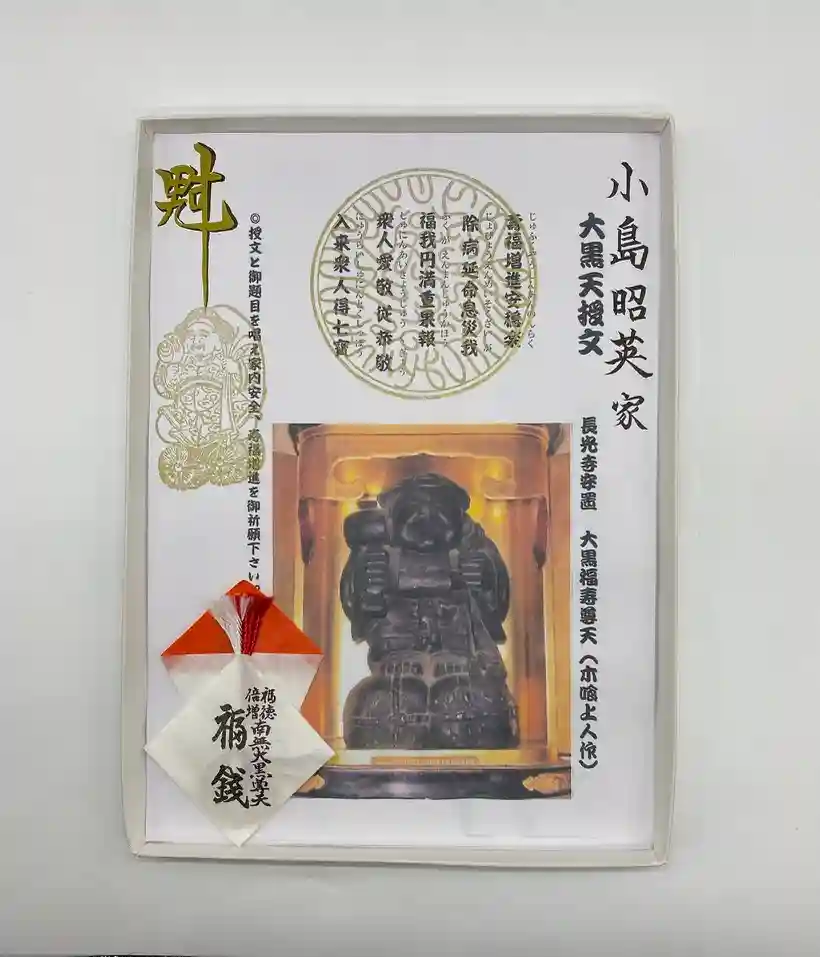 小島昭英家
大黒天授文
長光寺安置　大黒福寿尊天（木喰上人作）
壽福増進安穏楽
除病延命息災我
福我円満重果報
衆人愛敬従恭敬
入来衆人得七寶
◎授文と御題目を唱え家内安全、寿福増進を御祈願下さい。
魁
福徳
倍増
南無大黒尊天
福銭